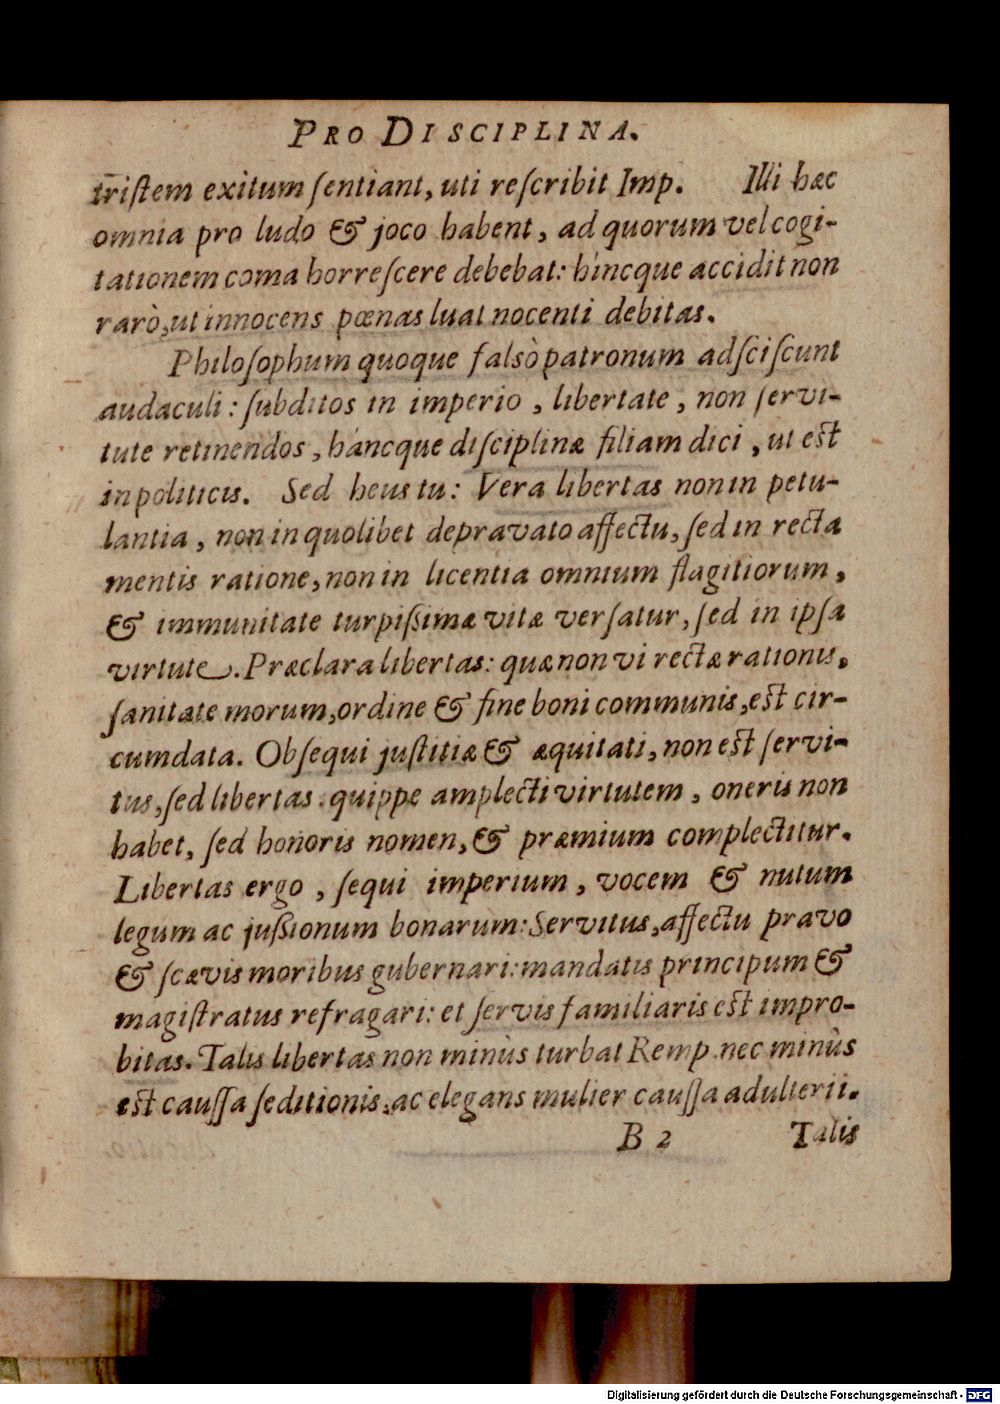 PRO DISCIPLINA.
triſtem exitum ſentiant, uti reſcribit Imp. Illi hæc
omnia pro ludo & joco habent, ad quorum vel cogi-
tationem coma horreſcere debebat: hincque accidit non
rarò, ut innocens pœnas luat nocenti debitas.
Philoſophum quoque falsò patronum adſciſcunt
audaculi: ſubditos in imperio, libertate, non ſervi-
tute retinendos, háncque diſciplinæ filiam dici, ut eſt
in politicis. Sed heus tu: Vera libertas non in petu-
lantia, non in quolibet depravato affectu, ſed in recta
mentis ratione, non in licentia omnium flagitiorum,
& immunitate turpiſſimæ vitæ verſatur, ſed in ipſa
virtute. Præclara libertas: quæ non vi rectæ rationis,
ſanitate morum, ordine & fine boni communis, eſt cir-
cumdata. Obſequi juſtitiæ & æquitati, non eſt ſervi-
tus, ſed libertas: quippe amplecti virtutem, oneris non
habet, ſed honoris nomen, & præmium complectitur.
Libertas ergo, ſequi imperium, vocem & nutum
legum ac juſſionum bonarum: Servitus, affectu pravo
& ſcævis moribus gubernari: mandatis principum &
magiſtratus refragari: et ſervis familiaris eſt impro-
bitas. Talis libertas non minùs turbat Remp. nec minùs
eſt cauſſa ſeditionis, ac elegans mulier cauſſa adulterii.
B 2 Talis
Digitalisierung gefördert durch die Deutsche Forschungsgemeinschaft - DFG